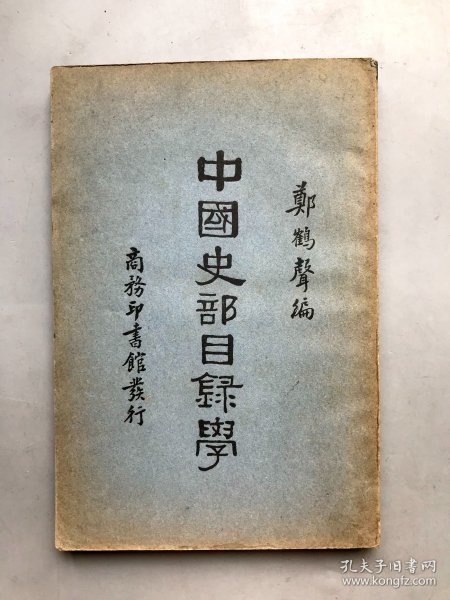 鄭鶴聲編
中國史部目録學
商務印書館發行
孔夫子旧书网
www.kongfz.com